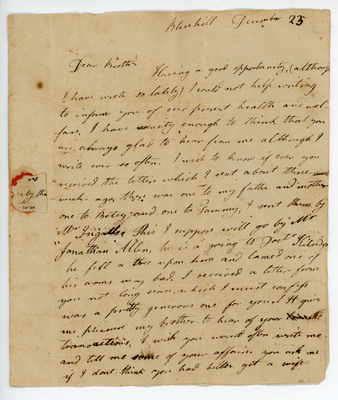 Bluehill December 25
Dear Brother
Having a good opportunity, (although
I have wrote so lately) I could not help writing
to inform you of our present health and wel-
fare, I have vanity enough to think that you
are always glad to hear from me although I
write ever so often. I wish to know if ever you
received the letters which I sent about three
weeks ago, there was one to my father and mother
one to and one to Tammy, I sent them by
Mr Ingalls. This I suppose will go by Mr
Jonathan Allen, he is a going to Doct
he fell a tree upon him and lamed one of
his arms very bad, I received a letter from
you not long since, which I must confess
was a pretty generous one for you. It gives
me pleasure my brother to hear of your
transactions, I wish you would often write me
and tell me some of your affairs, you ask me
if I dont think you had better get a wife